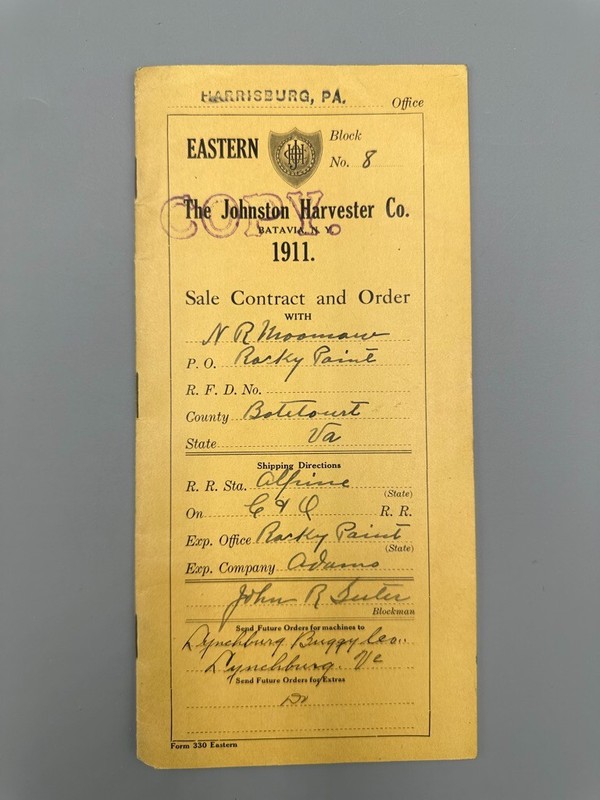 HARRISBURG, PA. Office
EASTERN
Block
No. 8
The Johnston Harvester Co.
COPY.
BATAVIA, N. Y.
1911.
Sale Contract and Order
WITH
N R Moomaw
P. O. Rocky Point
R. F. D. No.
County Botetourt
State Va
Shipping Directions
R. R. Sta. Alpine
(State)
On C & O R. R.
Exp. Office Rocky Point
(State)
Exp. Company Adams
John R
Blockman
Send Future Orders for machines to
Lynchburg Buggy Co..
Lynchburg Va
Send Future Orders for Extras
Do
Form 330 Eastern